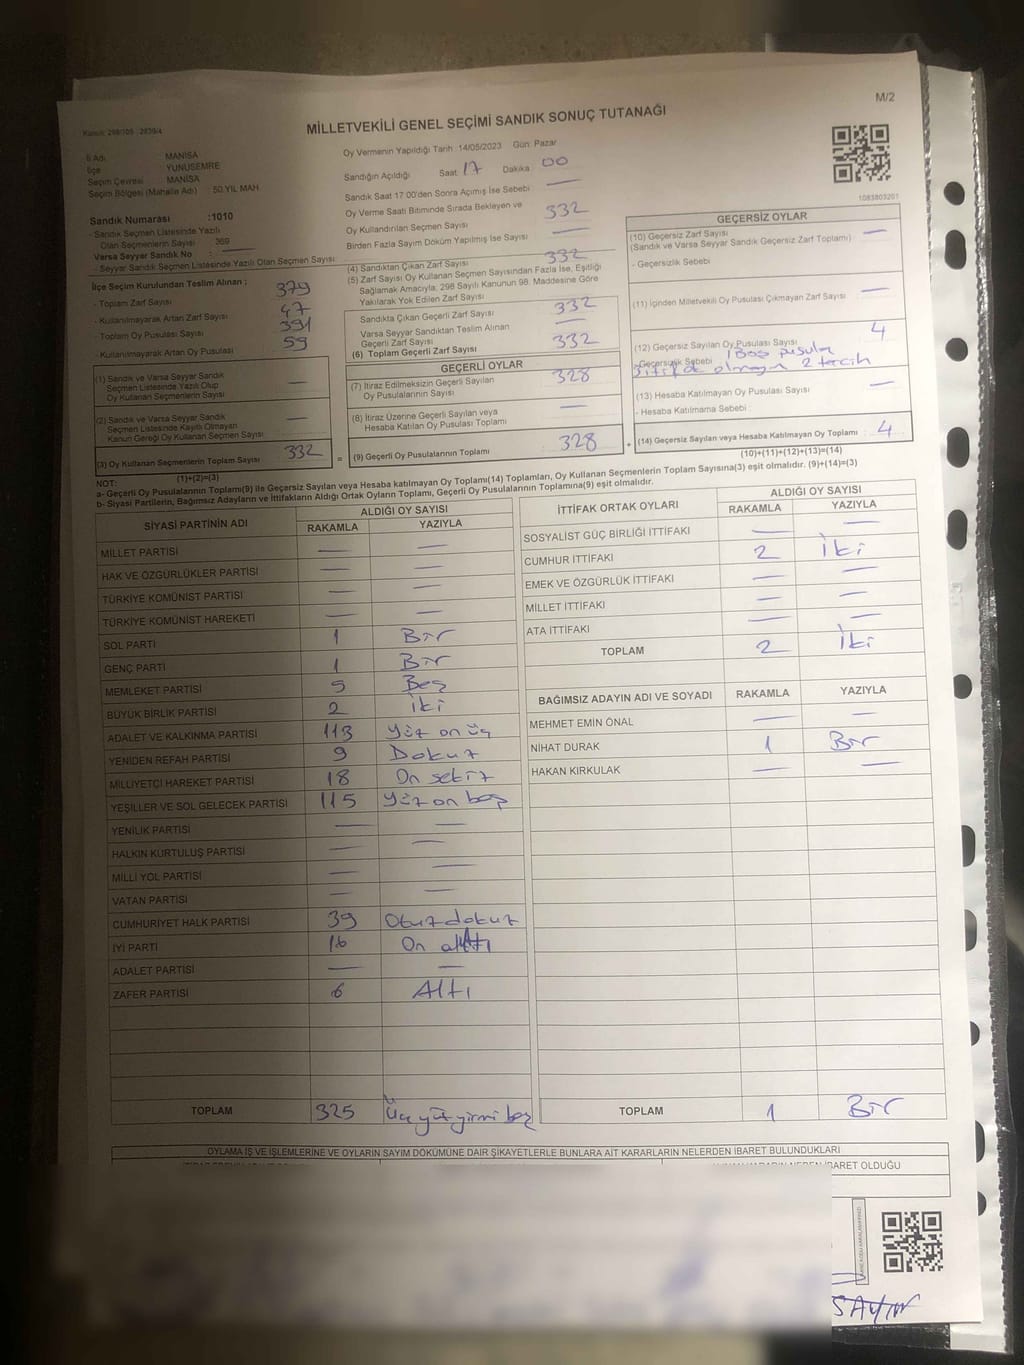 M/2
Kanun: 298/105 - 2839/4
MİLLETVEKİLİ GENEL SEÇİMİ SANDIK SONUÇ TUTANAĞI
İl Adı MANİSA
İlçe YUNUSEMRE
Seçim Çevresi MANİSA
Seçim Bölgesi (Mahalle Adı) : 50.YIL MAH
Sandık Numarası :1010
- Sandık Seçmen Listesinde Yazılı
Olan Seçmenlerin Sayısı 369
Varsa Seyyar Sandık No :
- Seyyar Sandık Seçmen Listesinde Yazılı Olan Seçmen Sayısı:
Oy Vermenin Yapıldığı Tarih :14/05/2023 Gün: Pazar
Sandığın Açıldığı Saat 17 Dakika 00
Sandık Saat 17.00'den Sonra Açımış İse Sebebi —
Oy Verme Saati Bitiminde Sırada Bekleyen ve
Oy Kullandırılan Seçmen Sayısı 332
Birden Fazla Sayım Döküm Yapılmış İse Sayısı —
1083803201
İlçe Seçim Kurulundan Teslim Alınan ;
- Toplam Zarf Sayısı 379
- Kullanılmayarak Artan Zarf Sayısı 47
- Toplam Oy Pusulası Sayısı 391
- Kullanılmayarak Artan Oy Pusulası 59
(1) Sandık ve Varsa Seyyar Sandık
Seçmen Listesinde Yazılı Olup
Oy Kullanan Seçmenlerin Sayısı —
(2) Sandık ve Varsa Seyyar Sandık
Seçmen Listesinde Kayıtlı Olmayan
Kanun Gereği Oy Kullanan Seçmen Sayısı —
(3) Oy Kullanan Seçmenlerin Toplam Sayısı 332
(1)+(2)=(3)
(4) Sandıktan Çıkan Zarf Sayısı 332
(5) Zarf Sayısı Oy Kullanan Seçmen Sayısından Fazla İse, Eşitliği
Sağlamak Amacıyla; 298 Sayılı Kanunun 98. Maddesine Göre
Yakılarak Yok Edilen Zarf Sayısı
Sandıkta Çıkan Geçerli Zarf Sayısı 332
Varsa Seyyar Sandıktan Teslim Alınan
Geçerli Zarf Sayısı —
(6) Toplam Geçerli Zarf Sayısı 332
GEÇERLİ OYLAR
(7) İtiraz Edilmeksizin Geçerli Sayılan
Oy Pusulalarının Sayısı 328
(8) İtiraz Üzerine Geçerli Sayılan veya
Hesaba Katılan Oy Pusulası Toplamı —
= (9) Geçerli Oy Pusulalarının Toplamı 328 +
GEÇERSİZ OYLAR
(10) Geçersiz Zarf Sayısı —
(Sandık ve Varsa Seyyar Sandık Geçersiz Zarf Toplamı)
- Geçersizlik Sebebi
(11) İçinden Milletvekili Oy Pusulası Çıkmayan Zarf Sayısı —
(12) Geçersiz Sayılan Oy Pusulası Sayısı 4
- Geçersizlik Sebebi 1 Boş pusula
3 ittifak olmayan 2 tercih
(13) Hesaba Katılmayan Oy Pusulası Sayısı —
- Hesaba Katılmama Sebebi :
(14) Geçersiz Sayılan veya Hesaba Katılmayan Oy Toplamı 4
(10)+(11)+(12)+(13)=(14)
NOT:
a- Geçerli Oy Pusulalarının Toplamı(9) ile Geçersiz Sayılan veya Hesaba katılmayan Oy Toplamı(14) Toplamları, Oy Kullanan Seçmenlerin Toplam Sayısına(3) eşit olmalıdır. (9)+(14)=(3)
b- Siyasi Partilerin, Bağımsız Adayların ve İttifakların Aldığı Ortak Oyların Toplamı, Geçerli Oy Pusulalarının Toplamına(9) eşit olmalıdır.
SİYASİ PARTİNİN ADI ALDIĞI OY SAYISI
RAKAMLA YAZIYLA
MİLLET PARTİSİ — —
HAK VE ÖZGÜRLÜKLER PARTİSİ — —
TÜRKİYE KOMÜNİST PARTİSİ — —
TÜRKİYE KOMÜNİST HAREKETİ — —
SOL PARTİ 1 Bir
GENÇ PARTİ 1 Bir
MEMLEKET PARTİSİ 5 Beş
BÜYÜK BİRLİK PARTİSİ 2 iki
ADALET VE KALKINMA PARTİSİ 113 Yüz on üç
YENİDEN REFAH PARTİSİ 9 Dokuz
MİLLİYETÇİ HAREKET PARTİSİ 18 On sekiz
YEŞİLLER VE SOL GELECEK PARTİSİ 115 Yüz on beş
YENİLİK PARTİSİ — —
HALKIN KURTULUŞ PARTİSİ — —
MİLLİ YOL PARTİSİ — —
VATAN PARTİSİ — —
CUMHURİYET HALK PARTİSİ 39 Otuz dokuz
İYİ PARTİ 16 On altı
ADALET PARTİSİ — —
ZAFER PARTİSİ 6 Altı
TOPLAM 325 Üç yüz yirmi beş
İTTİFAK ORTAK OYLARI ALDIĞI OY SAYISI
RAKAMLA YAZIYLA
SOSYALİST GÜÇ BİRLİĞİ İTTİFAKI — —
CUMHUR İTTİFAKI 2 İki
EMEK VE ÖZGÜRLÜK İTTİFAKI — —
MİLLET İTTİFAKI — —
ATA İTTİFAKI — —
TOPLAM 2 İki
BAĞIMSIZ ADAYIN ADI VE SOYADI RAKAMLA YAZIYLA
MEHMET EMİN ÖNAL — —
NİHAT DURAK 1 Bir
HAKAN KIRKULAK — —
TOPLAM 1 Bir
OYLAMA İŞ VE İŞLEMLERİNE VE OYLARIN SAYIM DÖKÜMÜNE DAİR ŞİKAYETLERLE BUNLARA AİT KARARLARIN NELERDEN İBARET BULUNDUKLARI
İBARET OLDUĞU